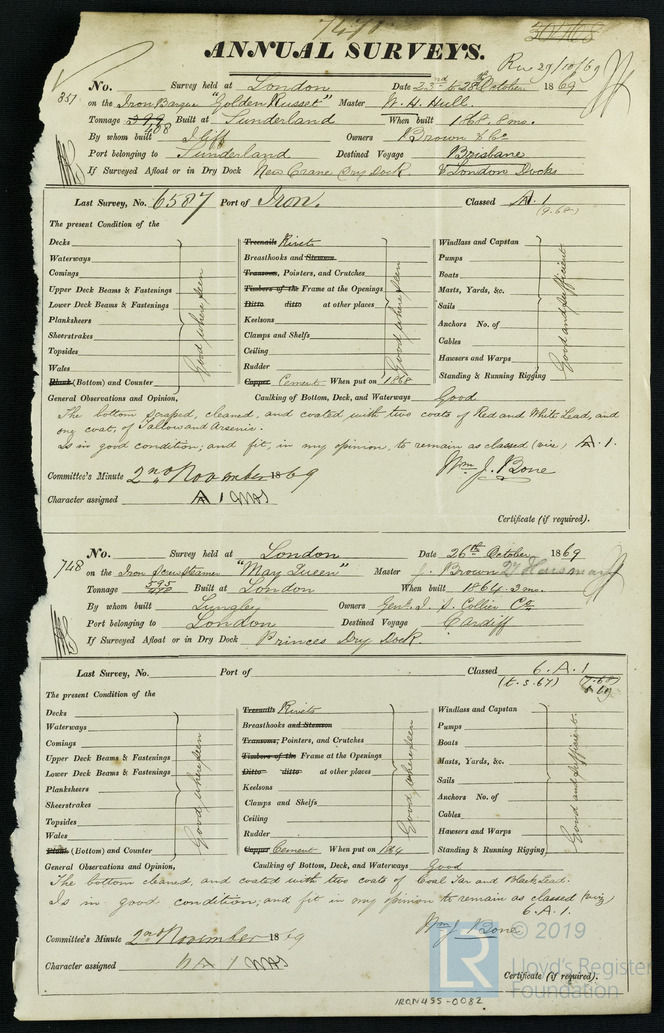 7471
ANNUAL SURVEYS.
Rec 29/10/69
351 No. Survey held at London Date 23rd & 28th October 1869
on the Iron Barque "Golden Russet" Master W. H. Hull.
Tonnage 399 408 Built at Sunderland When built 1868. 8mo.
By whom built Iliff Owners Brown & Co
Port belonging to Sunderland Destined Voyage Brisbane
If Surveyed Afloat or in Dry Dock New Crane Dry Dock. & London Docks
Last Survey, No. 6587 Port of Iron. Classed A.1
(9.68)
The present Condition of the
Decks Treenails Rivets Windlass and Capstan
Waterways Breasthooks and Stemson Pumps
Comings Transoms, Pointers, and Crutches Boats
Upper Deck Beams & Fastenings Timbers of the Frame at the Openings Masts, Yards, &c.
Lower Deck Beams & Fastenings Ditto ditto at other places Sails
Planksheers Keelsons Anchors No. of
Sheerstrakes Clamps and Shelfs Cables
Topsides Ceiling Hawsers and Warps
Wales Rudder Standing & Running Rigging
(Bottom) and Counter Copper Cement When put on 1868
Good where seen Good where seen Good and sufficient
General Observations and Opinion, Caulking of Bottom, Deck, and Waterways Good
The bottom scraped, cleaned, and coated with two coats of Red and White Lead, and
one coat, of Tallow and Arsenic.
Is in good condition; and fit, in my opinion, to remain as classed (viz) A.1.
Wm J. Bone
Committee's Minute 2nd November 1869
Character assigned A 1
Certificate (if required).
748 No. Survey held at London Date 26th October 1869
on the Iron Screw Steamer "May Queen" Master J. Brown
Tonnage 595 Built at London When built 1864. 3mo.
By whom built Lungley Owners Genl. I. S. Collier Co.
Port belonging to London Destined Voyage Cardiff
If Surveyed Afloat or in Dry Dock Princes Dry Dock.
Last Survey, No. Port of Classed 6.A.1
(t.s.67)
The present Condition of the
Decks Treenails Rivets Windlass and Capstan
Waterways Breasthooks and Stemson Pumps
Comings Transoms, Pointers, and Crutches Boats
Upper Deck Beams & Fastenings Timbers of the Frame at the Openings Masts, Yards, &c.
Lower Deck Beams & Fastenings Ditto ditto at other places Sails
Planksheers Keelsons Anchors No. of
Sheerstrakes Clamps and Shelfs Cables
Topsides Ceiling Hawsers and Warps
Wales Rudder Standing & Running Rigging
(Bottom) and Counter Copper Cement When put on 1864
Good where seen Good where seen Good and sufficient
General Observations and Opinion, Caulking of Bottom, Deck, and Waterways Good
The bottom cleaned, and coated with two coats of Coal Tar and Black Lead.
Is in good condition; and fit in my opinion to remain as classed (viz)
6.A.1.
Wm J. Bone
Committee's Minute 2nd November 1869
Character assigned A 1
Certificate (if required).
© 2019
LR Lloyd's Register
Foundation
IRON455-0082